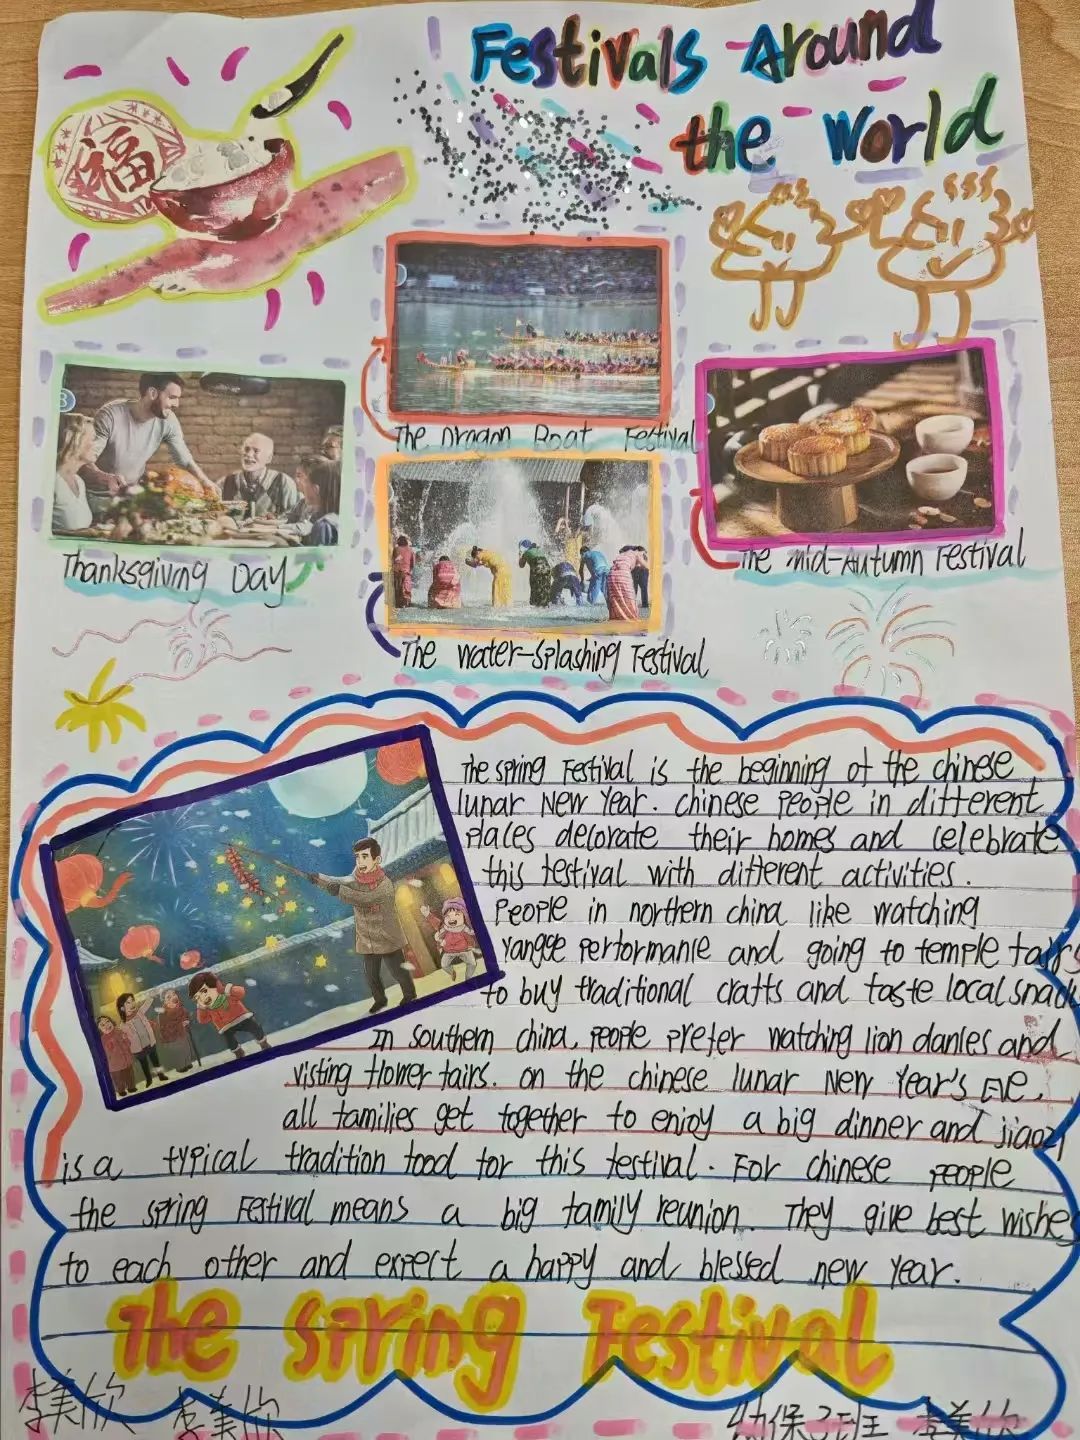 Festivals Around
the World
福
The Dragon Boat Festival
Thanksgiving Day
The mid-Autumn Festival
The water-splashing Festival
The spring Festival is the beginning of the chinese
lunar New Year. chinese people in different
places decorate their homes and celebrate
this festival with different activities.
People in northern china like watching
Yangge performance and going to temple fairs
to buy traditional crafts and taste local snack
In southern china, people prefer watching lion dances and
visting flower fairs. on the chinese lunar New Year's Eve,
all families get together to enjoy a big dinner and jiaozi
is a typical tradition food for this festival. For chinese people
the spring Festival means a big family reunion. They give best wishes
to each other and expect a happy and blessed new year.
The spring Festival
李美欣 李美欣 幼保3班 李美欣